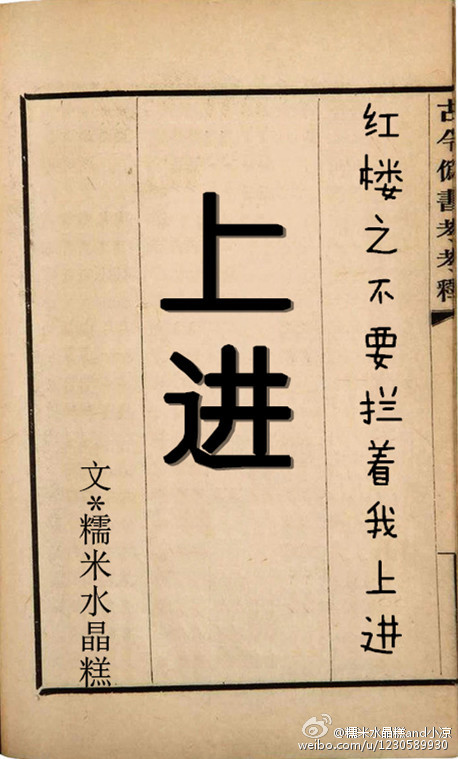 古今偽書考考釋
红楼之不要拦着我上进
上进
文*糯米水晶糕
@糯米水晶糕and小凉
weibo.com/u/1230589930